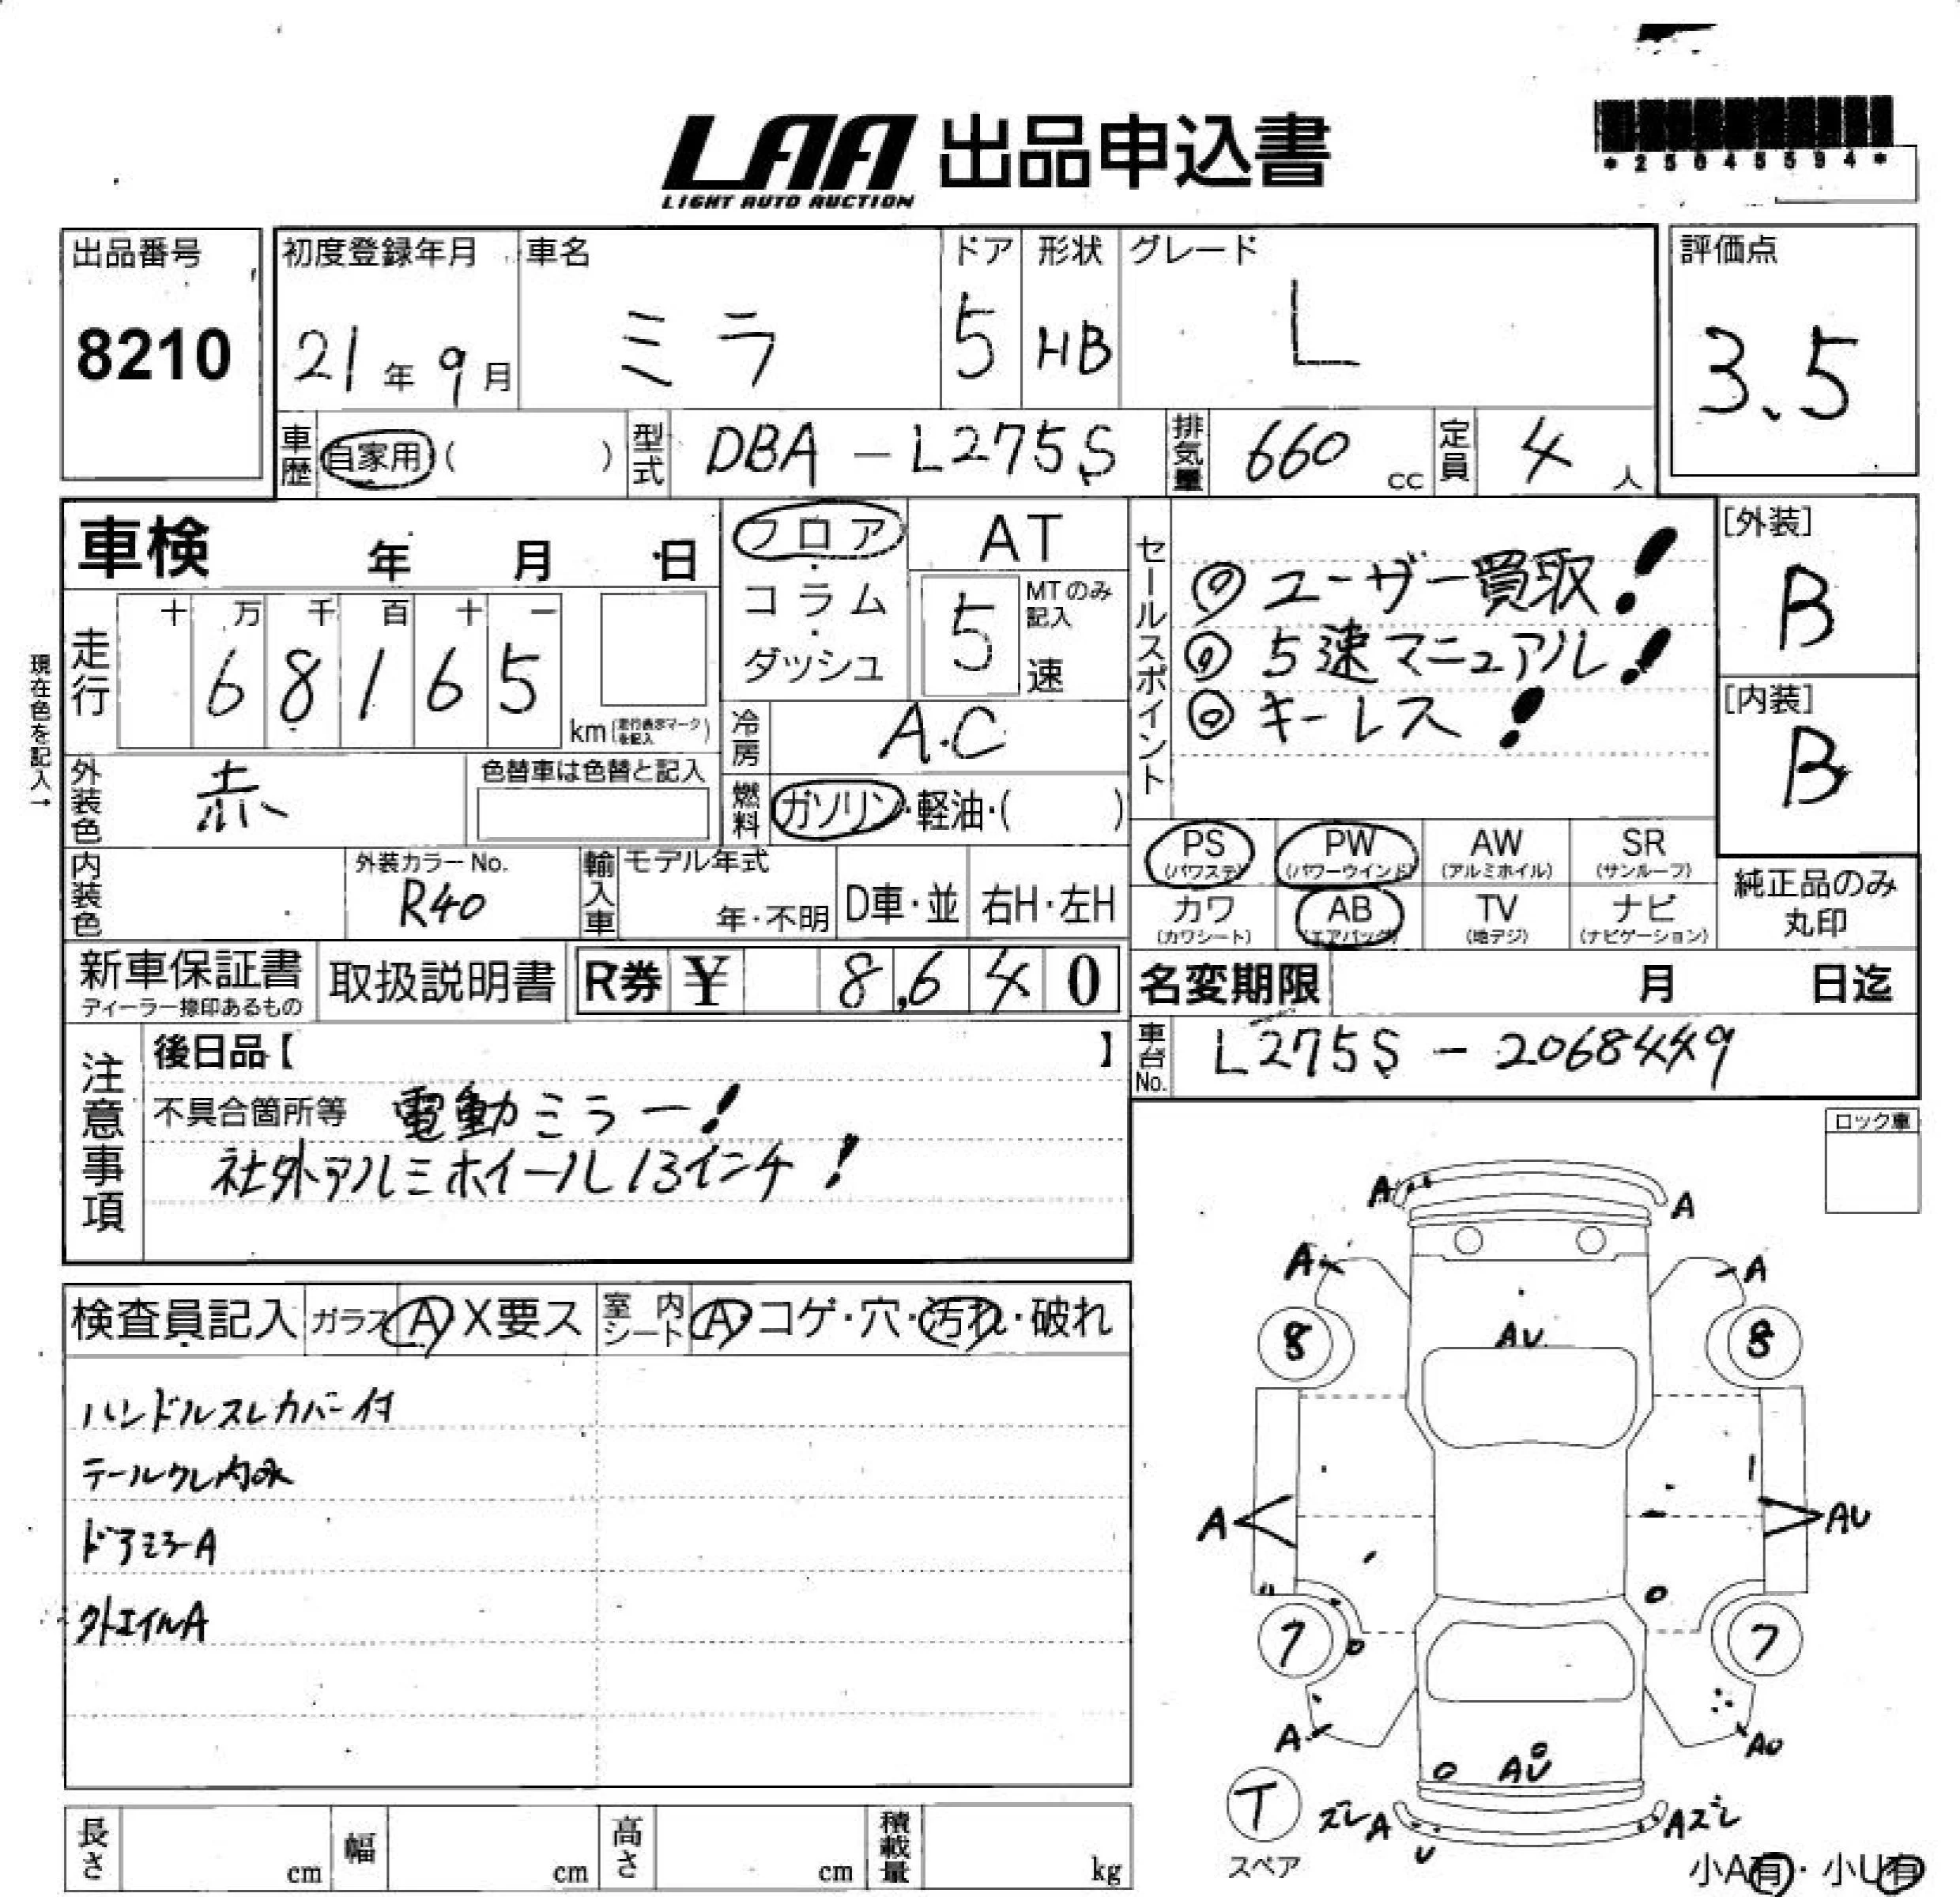 LAA 出品申込書
LIGHT AUTO AUCTION
*25045594*
出品番号
8210
初度登録年月
21年9月
車名
ミラ
ドア
5
形状
HB
グレード
L
評価点
3.5
車歴
自家用( )
型式
DBA-L275S
排気量
660 cc
定員
4人
車検 年 月 日
フロア・コラム・ダッシュ
AT
5速
MTのみ記入
セールスポイント
◎ユーザー買取!
◎5速マニュアル!
◎キーレス!
[外装]
B
[内装]
B
現在色を記入→
走行
十 万 千 百 十 一
68165
km(走行表示マークを記入)
冷房
A.C
外装色
赤
色替車は色替と記入
燃料
ガソリン・軽油・( )
内装色
外装カラーNo.
R40
輸入車
モデル年式
年・不明
D車・並
右H・左H
PS
(パワステ)
PW
(パワーウインド)
AW
(アルミホイル)
SR
(サンルーフ)
カワ
(カワシート)
AB
(エアバッグ)
TV
(地デジ)
ナビ
(ナビゲーション)
純正品のみ
丸印
新車保証書
ディーラー捺印あるもの
取扱説明書
R券 ¥ 8,640
名変期限 月 日迄
車台No.
L275S-2068449
注意事項
後日品【 】
不具合箇所等 電動ミラー!
社外アルミホイール13インチ!
ロック車
検査員記入
ガラス A X要ス
室内シート A・コゲ・穴・汚れ・破れ
ハンドルスレカバー付
ドアミラーA
A A
A A
8 8
AU
A AU
7 7
A AU
AU
T
スペア
ズレA
U
Aズレ
小A有・小U有
長さ cm
幅 cm
高さ cm
積載量 kg